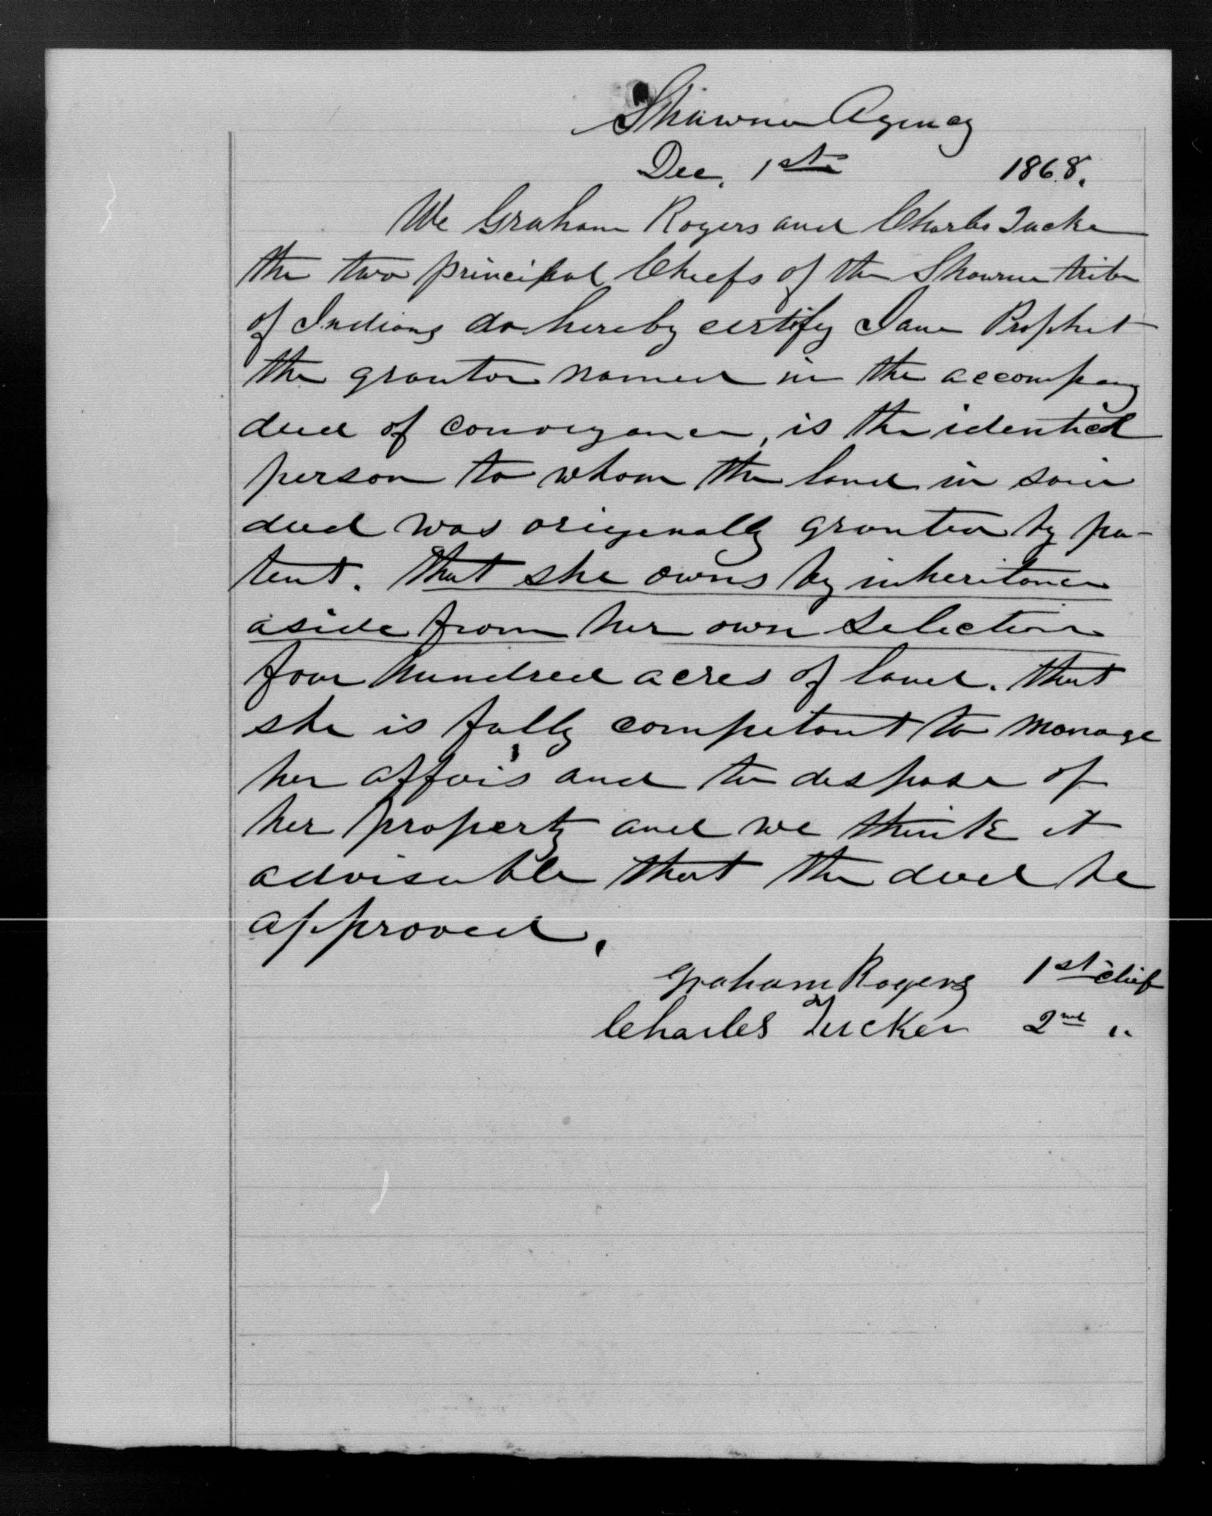 Shawnee Agency
Dec. 1st 1868.
We Graham Rogers and Charles Tucker
the two principal Chiefs of the Shawnee tribe
of Indians do hereby certify Jane Prophet
the grantor named in the accompany
deed of conveyance, is the identical
person to whom the land in said
deed was originally granted by pa-
tent. That she owns by inheritance
aside from her own selection
four hundred acres of land. that
she is fully competant to manage
her affairs and to despose of
her property and we think it
advisable that the deed be
approved.
Graham Rogers 1st Chief
Charles Tucker 2nd "